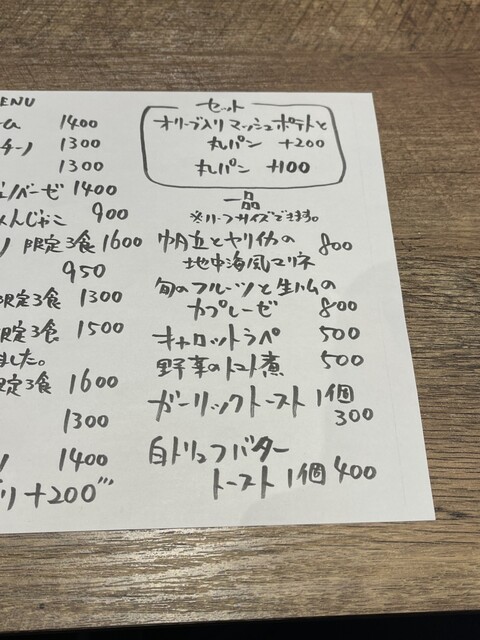 ENU
ーム 1400
チーノ 1300
1300
ジェノバーゼ 1400
めんじゃこ 900
ノ 限定3食 1600
950
限定3食 1300
限定3食 1500
ました。
限定3食 1600
1300
ノ 1400
リ +200
セット
オリーブ入りマッシュポテトと
丸パン +200
丸パン +100
一品
※ハーフサイズできます。
帆立とヤリイカの
地中海風マリネ 800
旬のフルーツと生ハムの
カプレーゼ 800
キャロットラペ 500
野菜のトマト煮 500
ガーリックトースト 1個
300
白トリュフバター
トースト 1個 400